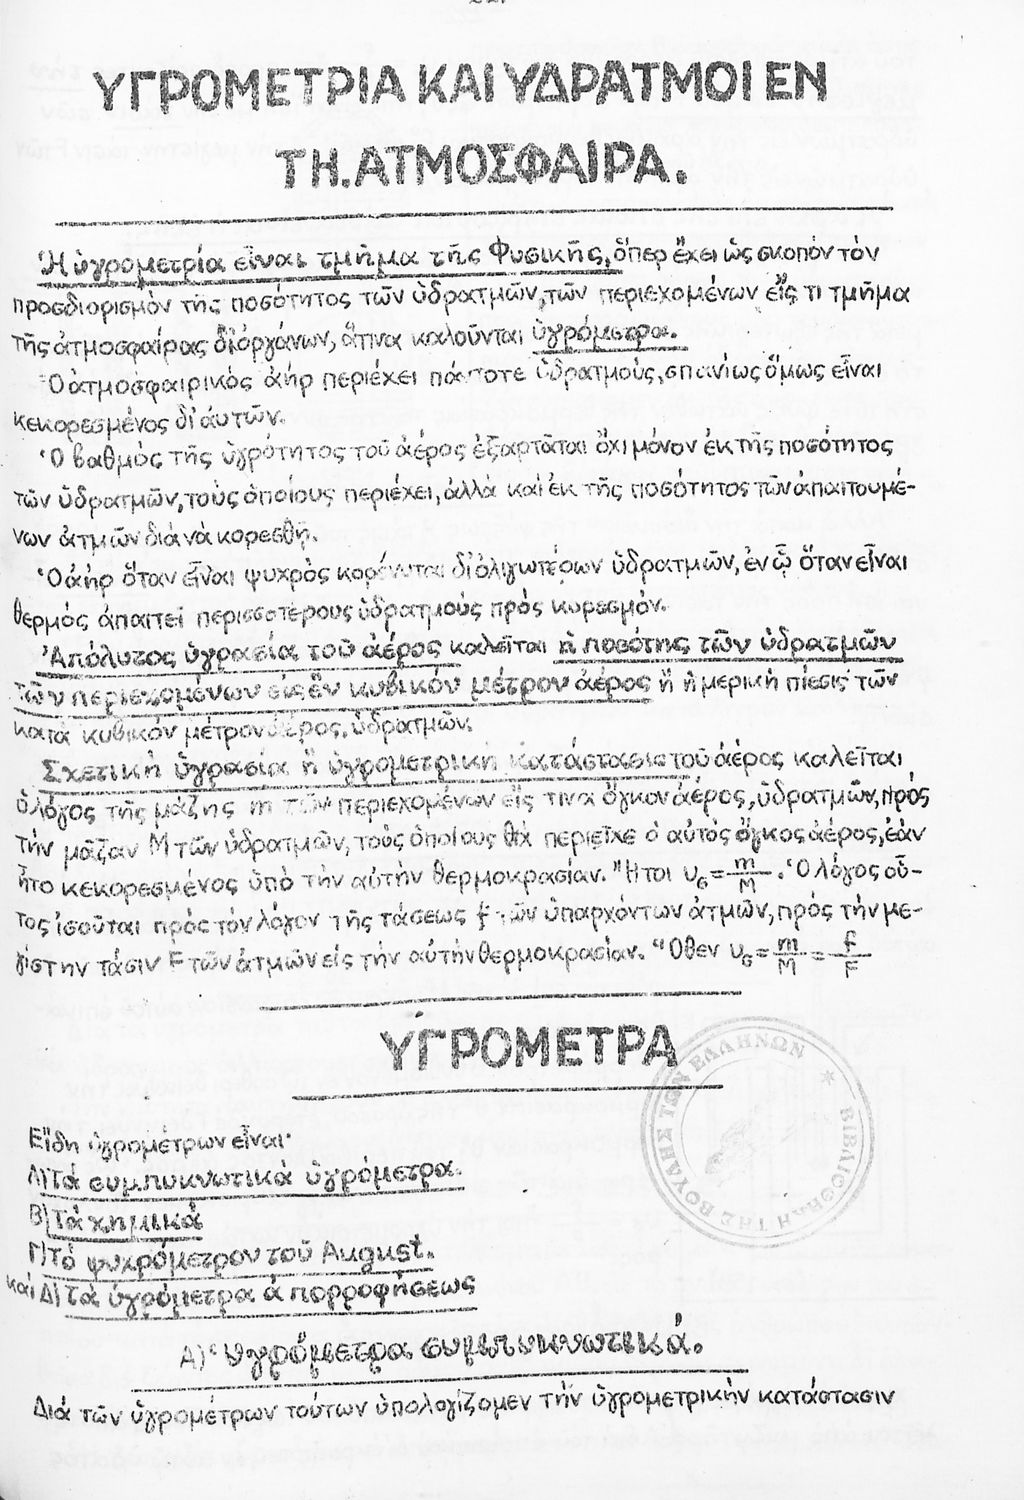 22.
ΥΓΡΟΜΕΤΡΙΑ ΚΑΙ ΥΔΡΑΤΜΟΙ ΕΝ
ΤΗ. ΑΤΜΟΣΦΑΙΡΑ.
Ἡ ὑγρομετρία εἶναι τμῆμα τῆς Φυσικῆς, ὅπερ ἔχει ὡς σκοπόν τόν
προσδιορισμόν τῆς ποσότητος τῶν ὑδρατμῶν, τῶν περιεχομένων εἴς τι τμῆμα
τῆς ἀτμοσφαίρας δι' ὀργάνων, ἅτινα καλοῦνται ὑγρόμετρα.
Ὁ ἀτμοσφαιρικός ἀήρ περιέχει πάντοτε ὑδρατμούς, σπανίως ὅμως εἶναι
κεκορεσμένος δι' αὐτῶν.
Ὁ βαθμός τῆς ὑγρότητος τοῦ ἀέρος ἐξαρτᾶται ὄχι μόνον ἐκ τῆς ποσότητος
τῶν ὑδρατμῶν, τούς ὁποίους περιέχει, ἀλλά καί ἐκ τῆς ποσότητος τῶν ἀπαιτουμέ-
νων ἀτμῶν διά νά κορεσθῇ.
Ὁ ἀήρ ὅταν εἶναι ψυχρός κορέννυται δι' ὀλιγωτέρων ὑδρατμῶν, ἐν ᾧ ὅταν εἶναι
θερμός ἀπαιτεῖ περισσοτέρους ὑδρατμούς πρός κορεσμόν.
Ἀπόλυτος ὑγρασία τοῦ ἀέρος καλεῖται ἡ ποσότης τῶν ὑδρατμῶν
τῶν περιεχομένων εἰς ἕν κυβικόν μέτρον ἀέρος ἤ ἡ μερική πίεσις τῶν
κατά κυβικόν μέτρον ἀέρος, ὑδρατμῶν.
Σχετική ὑγρασία ἤ ὑγρομετρική κατάστασις τοῦ ἀέρος καλεῖται
ὁ λόγος τῆς μάζης m τῶν περιεχομένων εἴς τινα ὄγκον ἀέρος, ὑδρατμῶν, πρός
τήν μᾶζαν M τῶν ὑδρατμῶν, τούς ὁποίους θά περιεῖχε ὁ αὐτός ὄγκος ἀέρος, ἐάν
ἦτο κεκορεσμένος ὑπό τήν αὐτήν θερμοκρασίαν. Ἤτοι υσ = m/M. Ὁ λόγος οὗ-
τος ἰσοῦται πρός τόν λόγον τῆς τάσεως f τῶν ὑπαρχόντων ἀτμῶν, πρός τήν με-
γίστην τάσιν F τῶν ἀτμῶν εἰς τήν αὐτήν θερμοκρασίαν. Ὅθεν υσ = m/M = f/F
ΥΓΡΟΜΕΤΡΑ
Εἴδη ὑγρομέτρων εἶναι·
Α) Τά συμπυκνωτικά ὑγρόμετρα.
Β) Τά χημικά
Γ) Τό ψυχρόμετρον τοῦ August.
καί Δ) τά ὑγρόμετρα ἀπορροφήσεως
Α) Ὑγρόμετρα συμπυκνωτικά.
Διά τῶν ὑγρομέτρων τούτων ὑπολογίζομεν τήν ὑγρομετρικήν κατάστασιν
ΒΙΒΛΙΟΘΗΚΗ ΤΗΣ ΒΟΥΛΗΣ ΤΩΝ ΕΛΛΗΝΩΝ